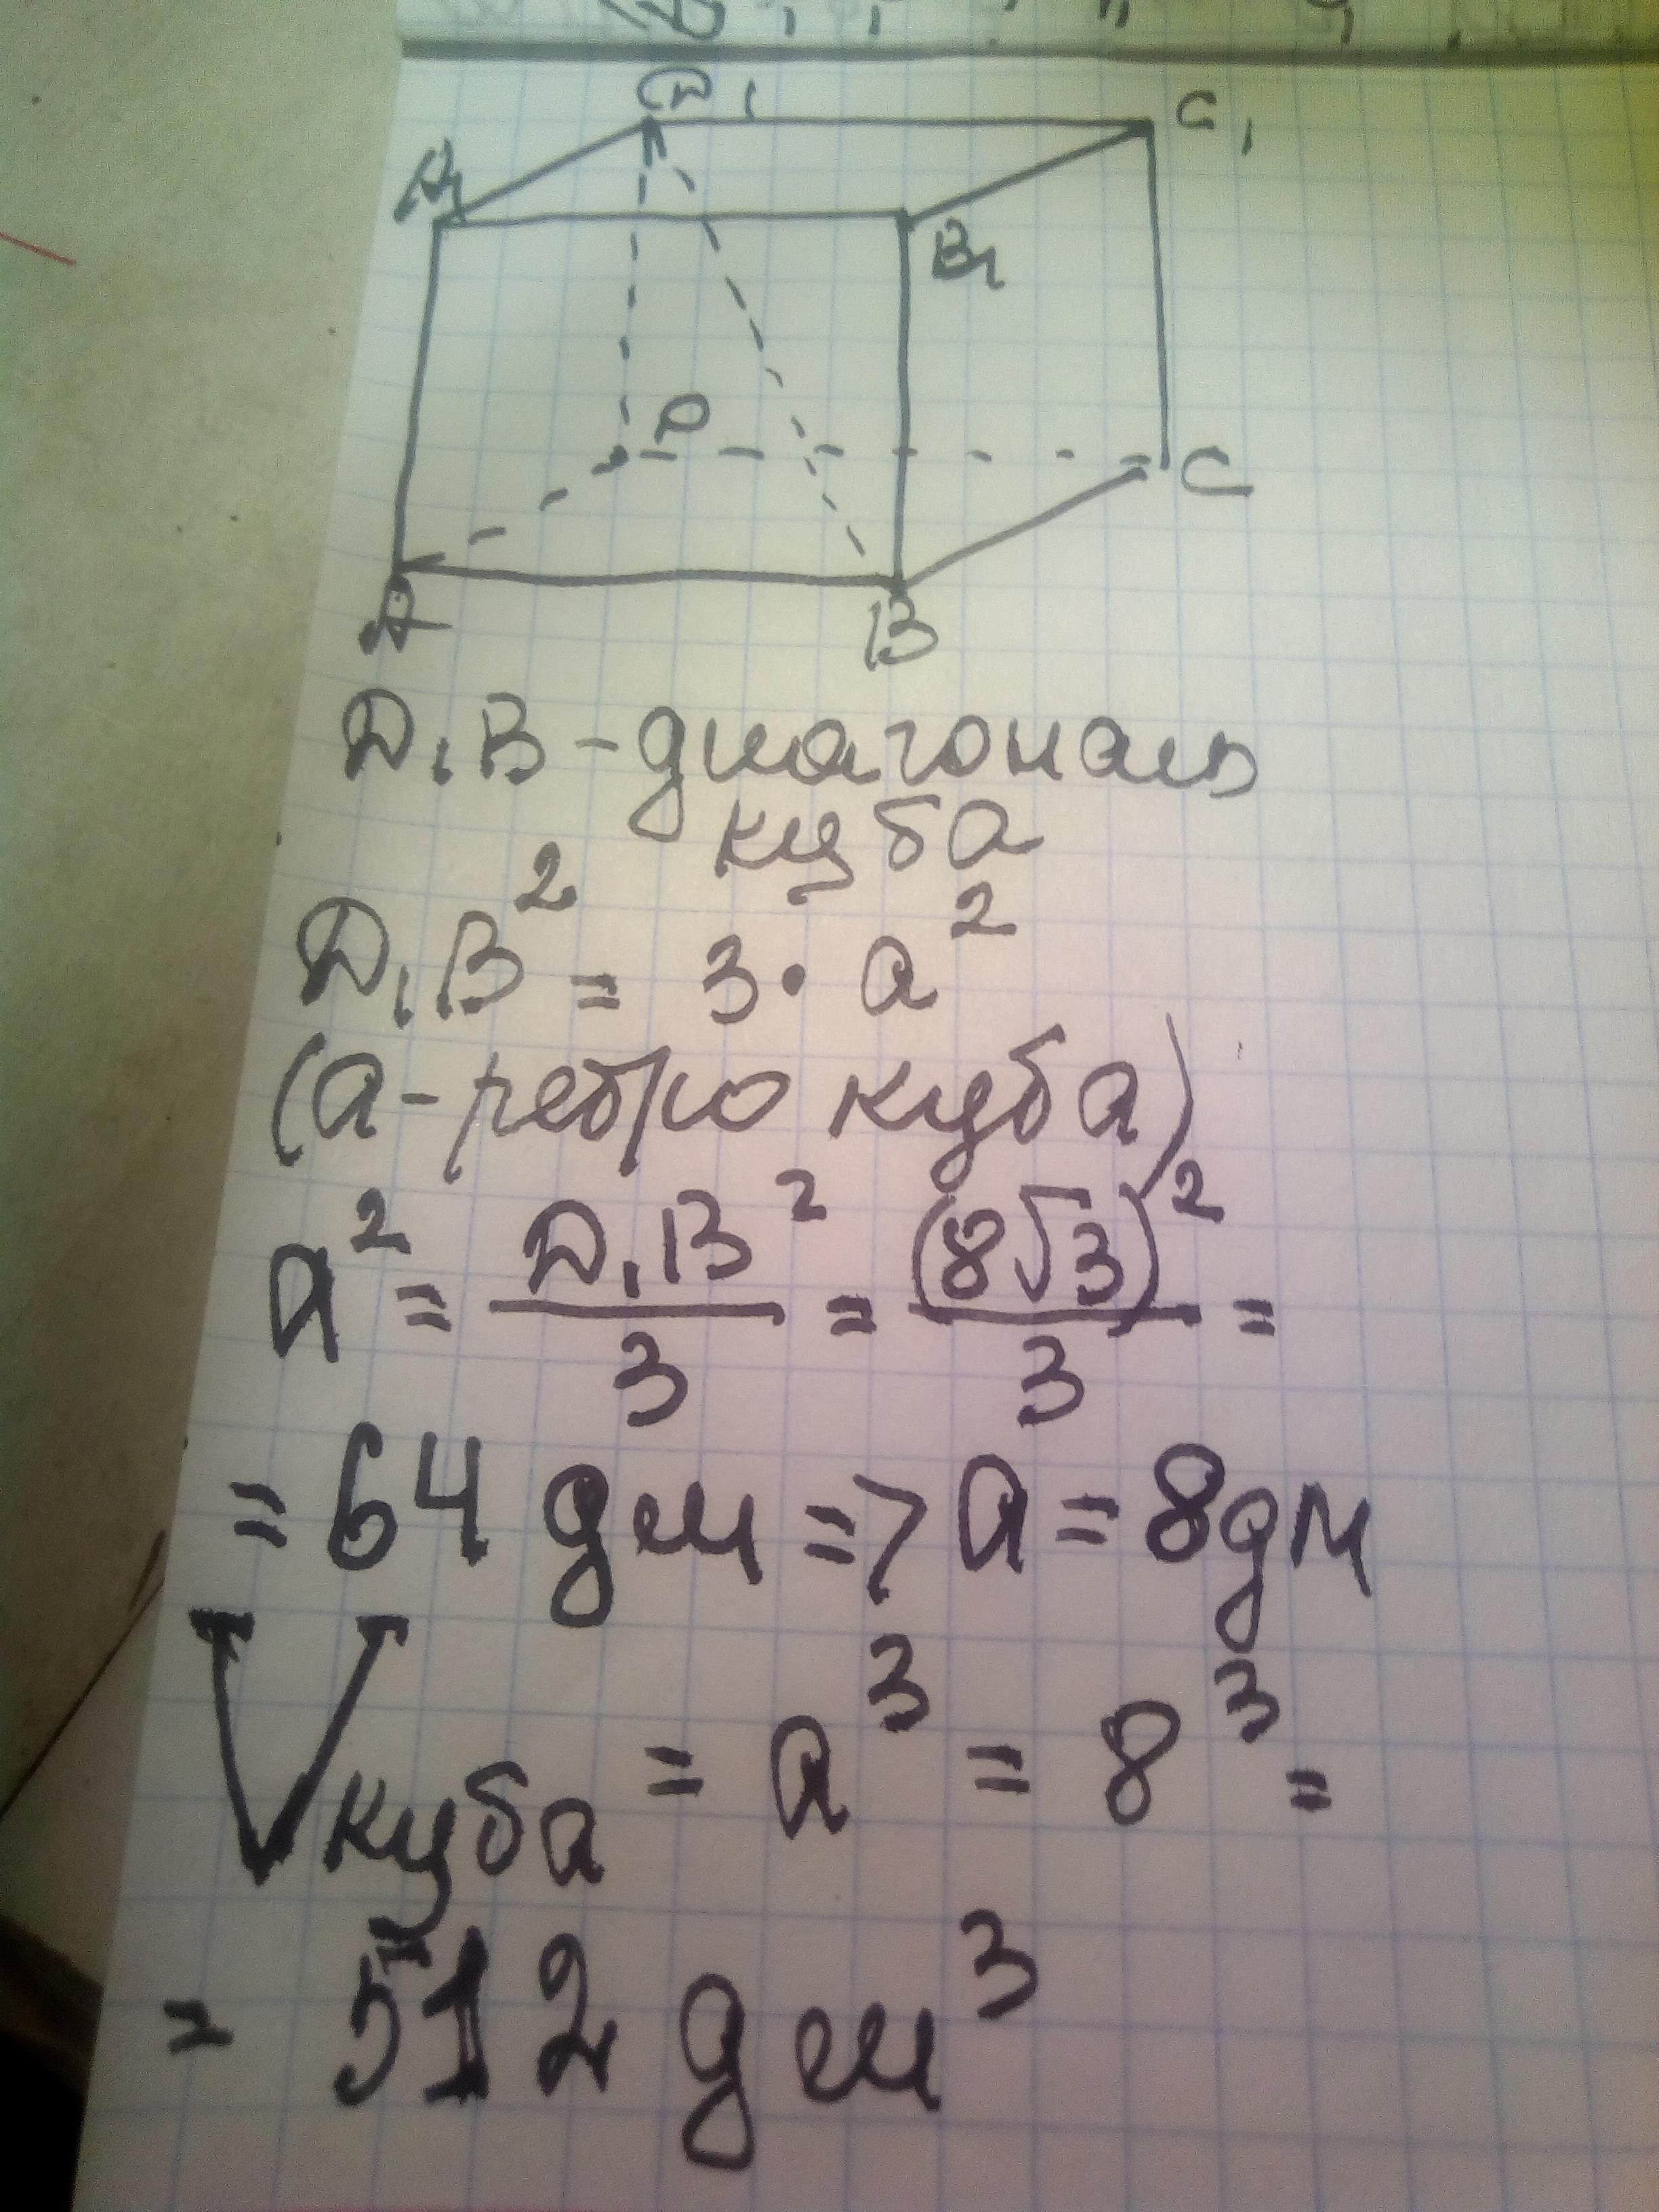 D₁ C₁
A₁ B₁
D C
A B
D₁B - диагональ
куба
D₁B² = 3 · a²
(a - ребро куба)
a² = D₁B²/3 = (8√3)²/3 =
= 64 дм => a = 8 дм
Vкуба = a³ = 8³ =
= 512 дм³